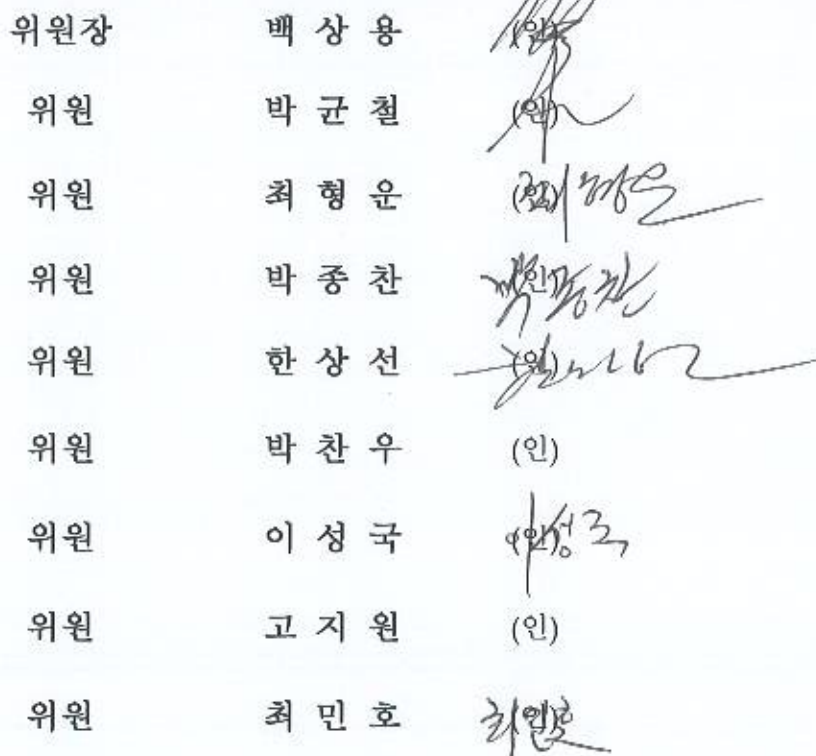 위원장 백 상 용 (인)
위원 박 균 철 (인)
위원 최 형 운 (인) 최형운
위원 박 종 찬 (인) 박종찬
위원 한 상 선 (인)
위원 박 찬 우 (인)
위원 이 성 국 (인) 이성국
위원 고 지 원 (인)
위원 최 민 호 (인) 최민호